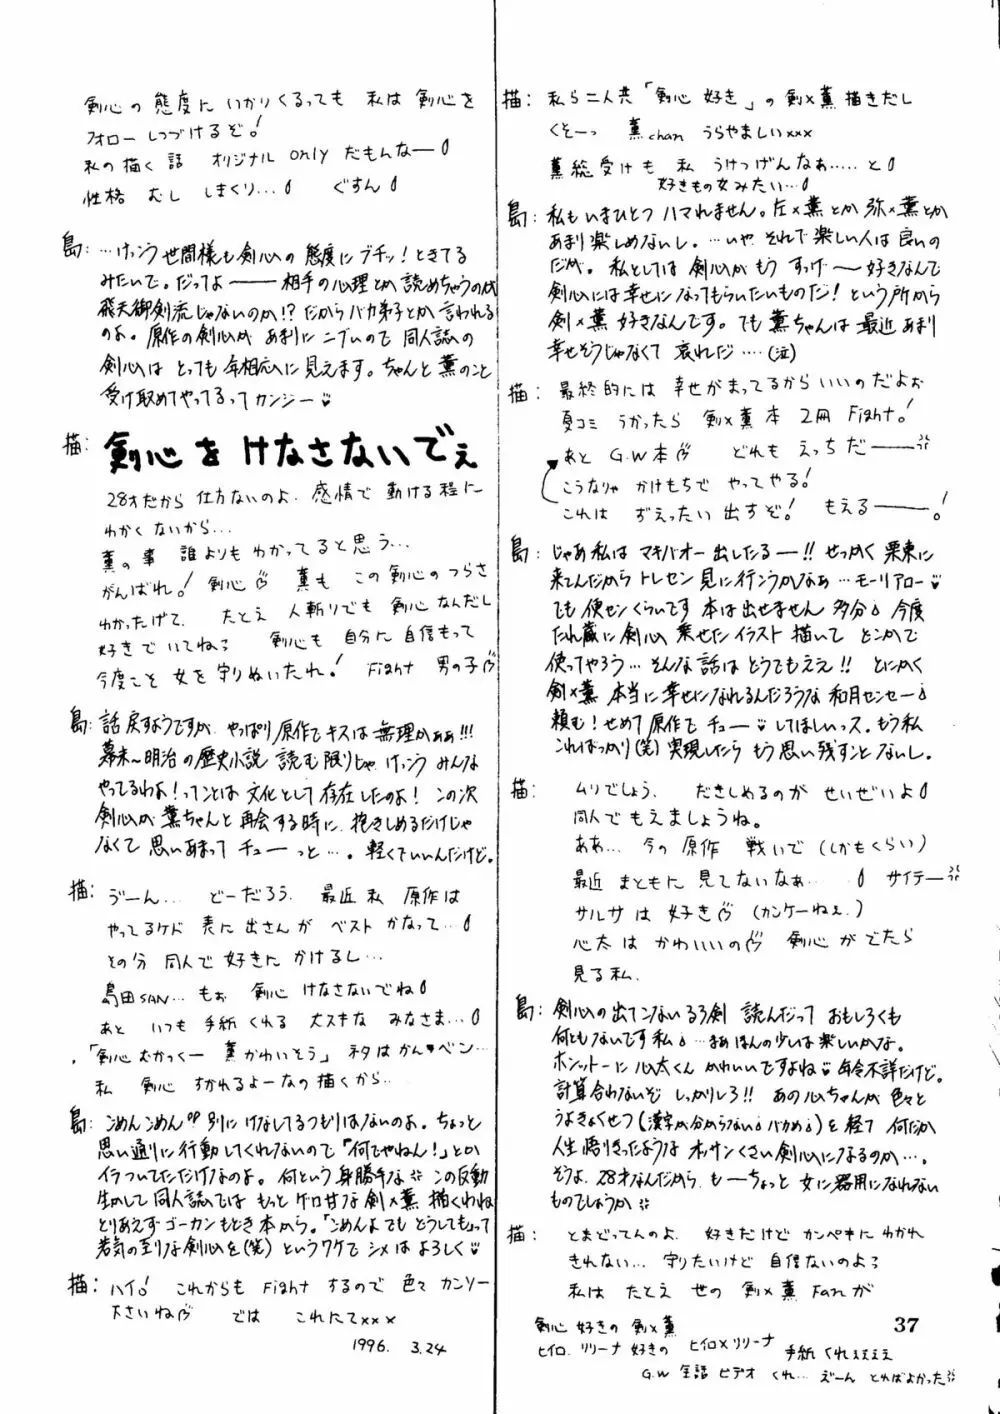 描: 私ら二人共「剣心 好き」の剣×薫 描きだし
くそーっ 薫chan うらやましいxxx
薫総受けも 私 うけつけんなぁ..... と
好きもの女みたい...
島: 私もいまひとつ ハマれません。左×薫とか 弥×薫とか
あまり楽しめないし。…いや それで楽しい人は良いの
だが。私としては 剣心が もう すっげ――好きなんで
剣心には幸せになってもらいたいものだ! という所から
剣×薫 好きなんです。でも 薫ちゃんは 最近 あまり
幸せそうじゃなくて 哀れだ‥‥(泣)
描: 最終的には 幸せがまってるからいいのだよぉ
夏コミ うかったら 剣×薫 本 2冊 Fight!
あと G.W本 どれも えっち だ――
こうなりゃ かけもちで やってやる!
これは ぜえったい 出すぞ! もえる――!
島: じゃあ私は マキバオー 出したる――!! せっかく 栗東に
来てんだから トレセン 見に行こうかなぁ…モーリアロー
でも 便セン くらいです 本は出せません 多分 今度
たれ蔵に 剣心 乗せた イラスト 描いて どこかで
使ってやろう… そんな話は どうでもええ!! とにかく
剣×薫 本当に幸せになれるんだろうな 和月センセー
頼む! せめて 原作で チュー してほしいっス。もう私
こればっかり(笑) 実現したら もう思い残すことないし。
描: ムリでしょう、 だきしめるのが せいぜいよ
同人で もえましょうね。
ああ... 今の 原作 戦いで (しかもくらい)
最近 まともに 見てないなぁ... サイテー
サルサ は 好き (カンケーねぇ.)
心太 は かわいいの 剣心 が でたら
見る私.
島: 剣心の出てこないるろ剣 読んだって おもしろくも
何ともないです 私 …まあほんの少しは楽しいかな。
ホンットーに 心太くん かわいいですよね 年令不詳だけど。
計算合わないぞ しっかりしろ!! あの 心ちゃんが 色々と
うよきょくせつ (漢字が分からない バカめ) を 経て 何だか
人生 悟りきったような オッサンくさい剣心になるのか…。
そうよ、28才なんだから も―ちょっと 女に器用になれない
ものでしょうか
描: とまどってんのよ、 好きだけど カンペキに わかれ
きれない... 守りたいけど 自信ないのよ
私は たとえ 世の 剣×薫 Fanが
剣心の 態度に いかりくるっても 私は 剣心を
フォロー しつづけるぞ!
私の描く 話 オリジナル only だもんなー
性格 むし しまくり... ぐすん
島: …けっこう 世間様も剣心の 態度にブチッ! ときてる
みたいで。だってよ――相手の心理とか読めちゃうのが
飛天御剣流じゃないのか!? だから バカ弟子とか 言われる
のよ。原作の剣心が あまりに ニブいので 同人誌の
剣心は とっても 年相応に見えます。ちゃんと 薫のこと
受け取めてやってるって カンジー
描: 剣心を けなさないでぇ
28才だから 仕方ないのよ. 感情で 動ける程に
わかく ないから...
薫の事 誰よりも わかってると思う...
がんばれ! 剣心 薫も この剣心のつらさ
わかったげて、 たとえ 人斬りでも 剣心なんだし
好きで いてね 剣心も 自分に自信もって
今度こそ 女を 守りぬいたれ! Fight 男の子
島: 話 戻すようですが、やっぱり 原作でキスは 無理かぁぁ!!!
幕末～明治の歴史小説 読む限りじゃ けっこう みんな
やってるわよ! ってことは 文化として 存在したのよ! この次
剣心が 薫ちゃんと 再会する時に、抱きしめるだけじゃ
なくて 思いあまって チューっと…。軽くていいんだけど。
描: うーん... どーだろう. 最近 私 原作は
やってるケド 表に 出さんが ベスト かなって...
その分 同人で 好きに かけるし...
島田SAN... もぉ 剣心 けなさないでね
あと いつも 手紙 くれる 大スキな みなさま...
「剣心 むかっくー 薫 かわいそう」 ネタは かんベン...
私 剣心 すかれるよーなの 描くから..
島: ごめんごめん 別に けなしてるつもりはないのよ。ちょっと
思い通りに 行動してくれないので「何でやねん!」とか
イラついてただけなのよ。何という 身勝手な この反動
生かして 同人誌では もっと ゲロ甘な 剣×薫 描くわね
とりあえず ゴーカンもどき 本から。「ごめんよ でも どうしてもょって
若気の至りな 剣心を(笑) というワケで シメは よろしく
描: ハイ! これからも Fight するので 色々 カンソー
下さいね では これにてxxx
1996. 3.24
剣心 好きの 剣×薫
ヒイロ. リリーナ 好きの ヒイロ×リリーナ 手紙 くれぇぇぇぇ
G.W 全話 ビデオ くれ... えーん とればよかった
37